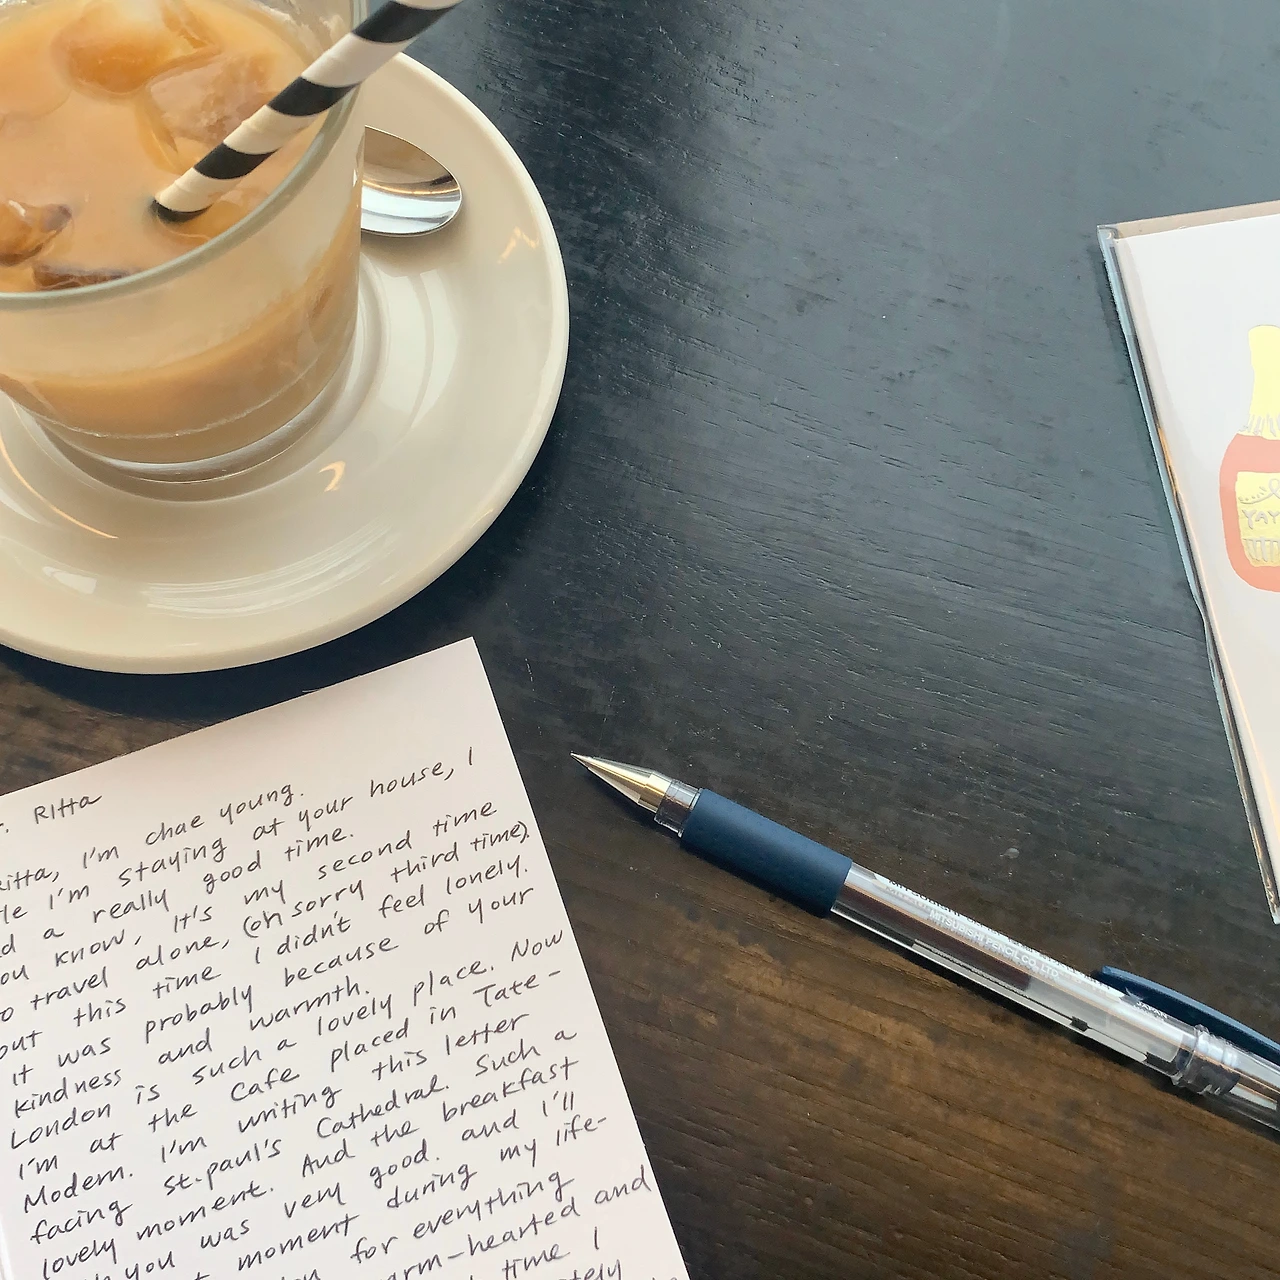 . Ritta
Ritta, I'm chae young.
I'm staying at your house, I
a really good time.
know, It's my second time
travel alone, (oh sorry third time).
this time I didn't feel lonely.
It was probably because of your
kindness and warmth.
London is such a lovely place. Now
I'm at the Cafe placed in Tate-
Modern. I'm writing this letter
facing st.paul's Cathedral. Such a
lovely moment. And the breakfast
you was very good. and I'll
moment during my life-
for everything
-hearted and
time I
YAY
MITSUBISHI PENCIL CO., LTD.
JAPAN